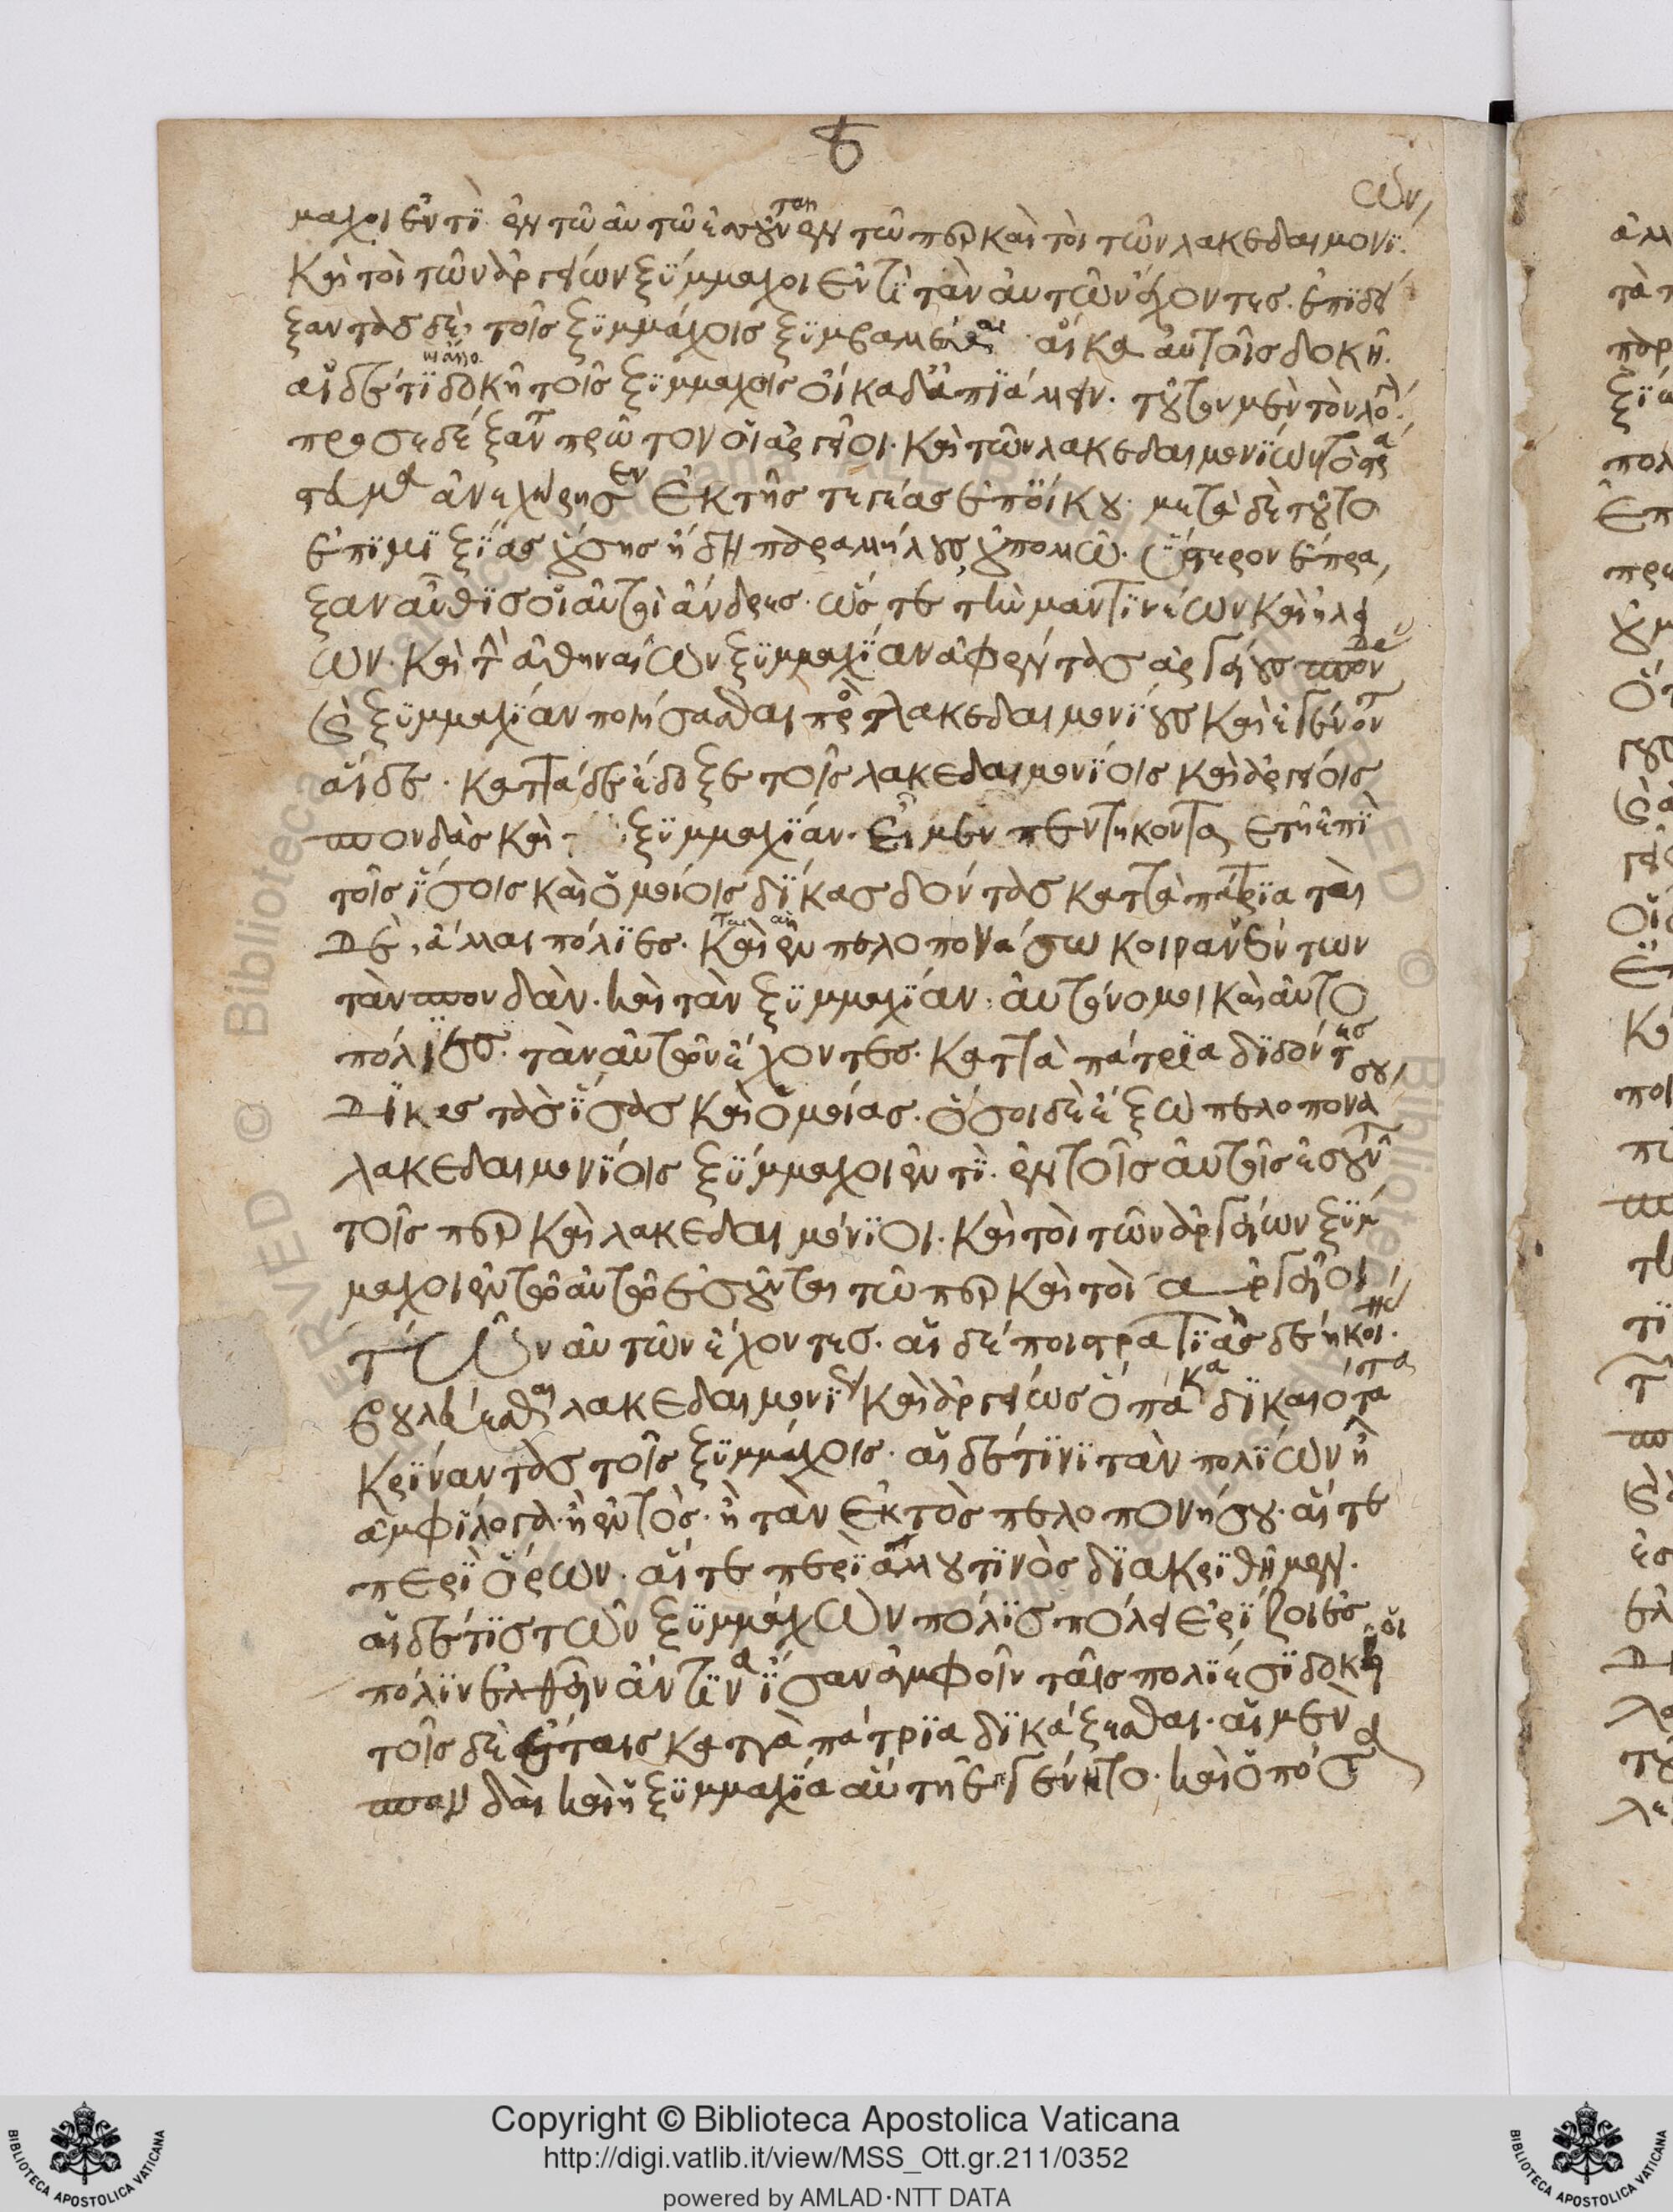 ϛ
μαχοι ἐντὶ. ἐν τῶ αὐτῶ ἐσοῦνται ἐν τῶπερ καὶ τοὶ τῶν λακεδαιμονίων,
καὶ τοὶ τῶν ἀργείων ξύμμαχοι ἐντὶ τὰν αὐτῶν ἔχοντες. ἐπιδεί
ξαντας δὲ, τοῖς ξυμμάχοις ξυμβαλέσθαι αἴκα αὐτοῖς δοκῆ.
αἰ δέ τι δοκῆ τοῖς ξυμμάχοις οἴκαδ' ἀπιάλλην. τοῦτον μὲν τὸν λόγον
προσεδέξαντο πρῶτον οἱ ἀργεῖοι. καὶ τῶν λακεδαιμονίων τὸ στρά
τευμα ἀνεχώρησεν ἐκ τῆς τεγέας ἐπ' οἴκου. μετὰ δὲ τοῦτο
ἐπιμιξίας οὔσης ἤδη παρ' ἀλλήλους οὐ πολλῶ. ὕστερον ἔπρα,
ξαν αὖθις οἱ αὐτοὶ ἄνδρες. ὥστε τὴν μαντινέων καὶ ἠλεί
ων. καὶ τὴν ἀθηναίων ξυμμαχίαν ἀφέντας ἀργείους σπονδὰς
καὶ ξυμμαχίαν ποιήσασθαι πρὸς λακεδαιμονίους καὶ ἐγένοντο
αἵδε. καττάδε ἔδοξε τοῖς λακεδαιμονίοις καὶ ἀργείοις
σπονδὰς καὶ ξυμμαχίαν. εἶμεν πεντήκοντα ἔτη ἐπὶ
τοῖς ἴσοις καὶ ὁμοίοις δίκας δόντας καττὰ πάτρια ταὶ
δὲ, ἄλλαι πόλιες. ταὶ ἐν πελοποννάσω κοινανεόντων
τὰν σπονδὰν. καὶ τὰν ξυμμαχίαν. αὐτόνομοι καὶ αὐτο
πόλιες. τὰν αὐτῶν ἔχοντες. καττὰ πάτρια διδόντες
δίκας τὰς ἴσας καὶ ὁμοίας. ὅσοι δὲ ἔξω πελοπονάσου,
λακεδαιμονίοις ξύμμαχοι ἐντὶ. ἐν τοῖς αὐτοῖς ἐσοῦνται
τοῖσπερ καὶ λακεδαιμόνιοι. καὶ τοὶ τῶν ἀργείων ξύμ
μαχοι ἐν τῶ αὐτῶ ἐσοῦνται τῶπερ καὶ τοὶ ἀργεῖοι
τὰν αὐτῶν ἔχοντες. αἰ δέ ποι στρατιᾶς δέη κοι.
βουλεύεσθαι λακεδαιμονίως καὶ ἀργείως ὅπα κα δικαιότατα
κρίναντας τοῖς ξυμμάχοις. αἰ δέ τινι τᾶν πολίων ἢ
ἀμφίλογα. ἢ ἐντὸς. ἢ τᾶν ἐκτὸς πελοπονήσου. αἴτε
περὶ ὅρων. αἴτε περὶ ἄλλου τινὸς διακριθῆμεν.
αἰ δέ τις τῶν ξυμμάχων πόλις πόλει ἐρίζοι ἐς
πόλιν ἐλθεῖν ἅντινα ἴσαν ἀμφοῖν ταῖς πολίεσι δοκῆ
τοῖς δὲ ἔταις καττὰ πάτρια δικάζεσθαι. αἱ μὲν
σπονδαὶ καὶ ἡ ξυμμαχία αὕτη ἐγεγένητο. καὶ ὁπόσα